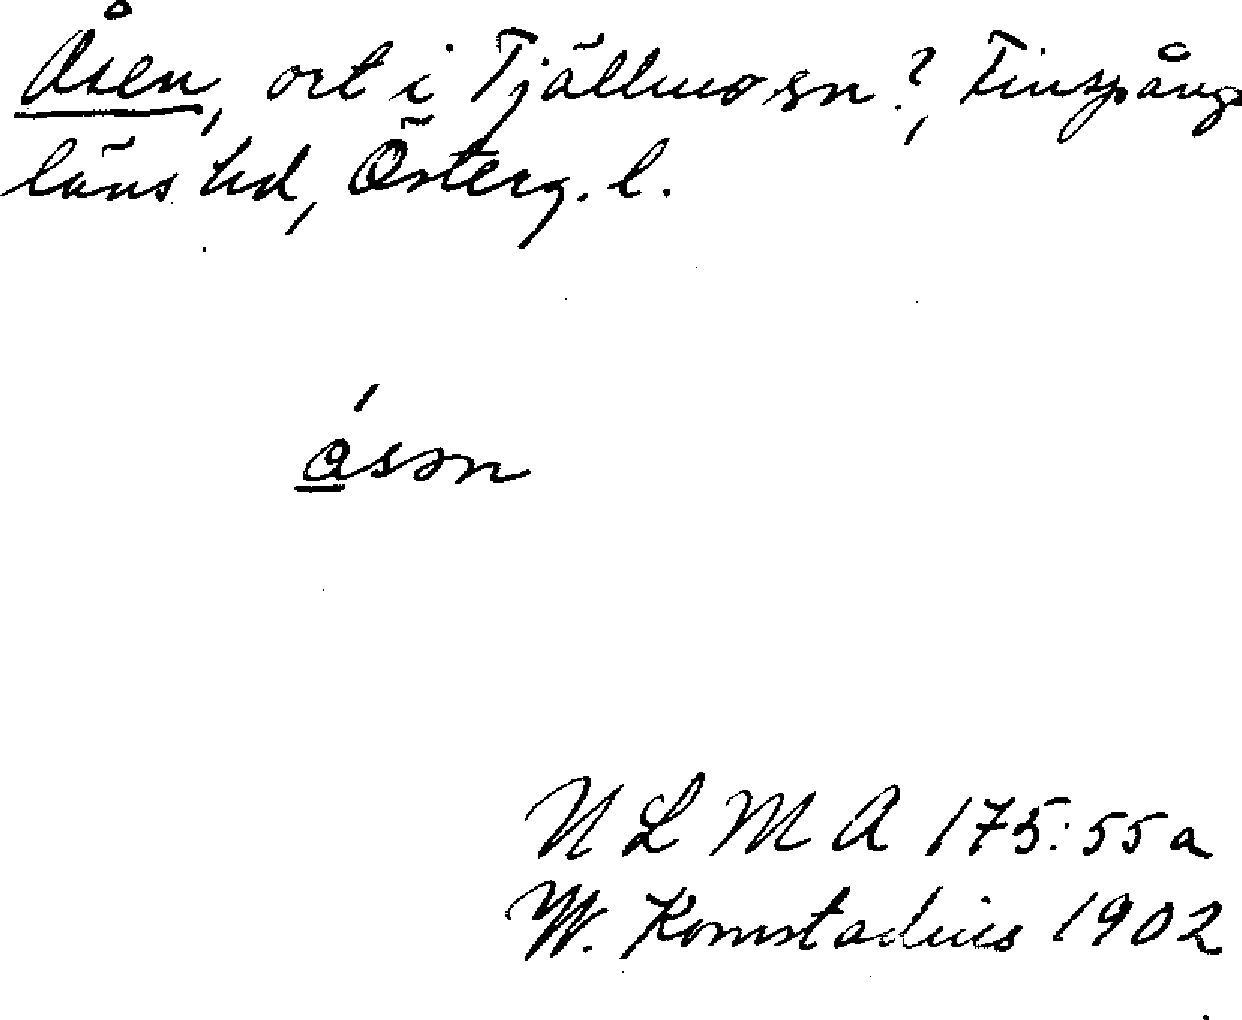 Åsen, ort i Tjällmo sn?, Finspångs
läns hd, Österg. l.
åsən
ULMA 175:55a
W. Komstadius 1902